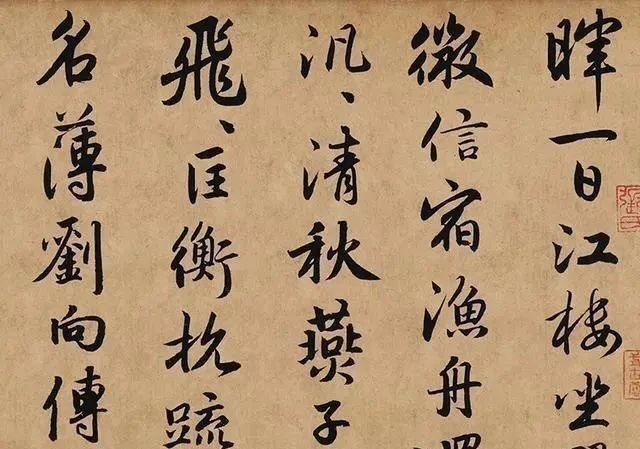 暉一日江樓坐翠
微信宿漁舟還
汎〻清秋燕子
飛〻匡衡抗疏
名薄劉向傳